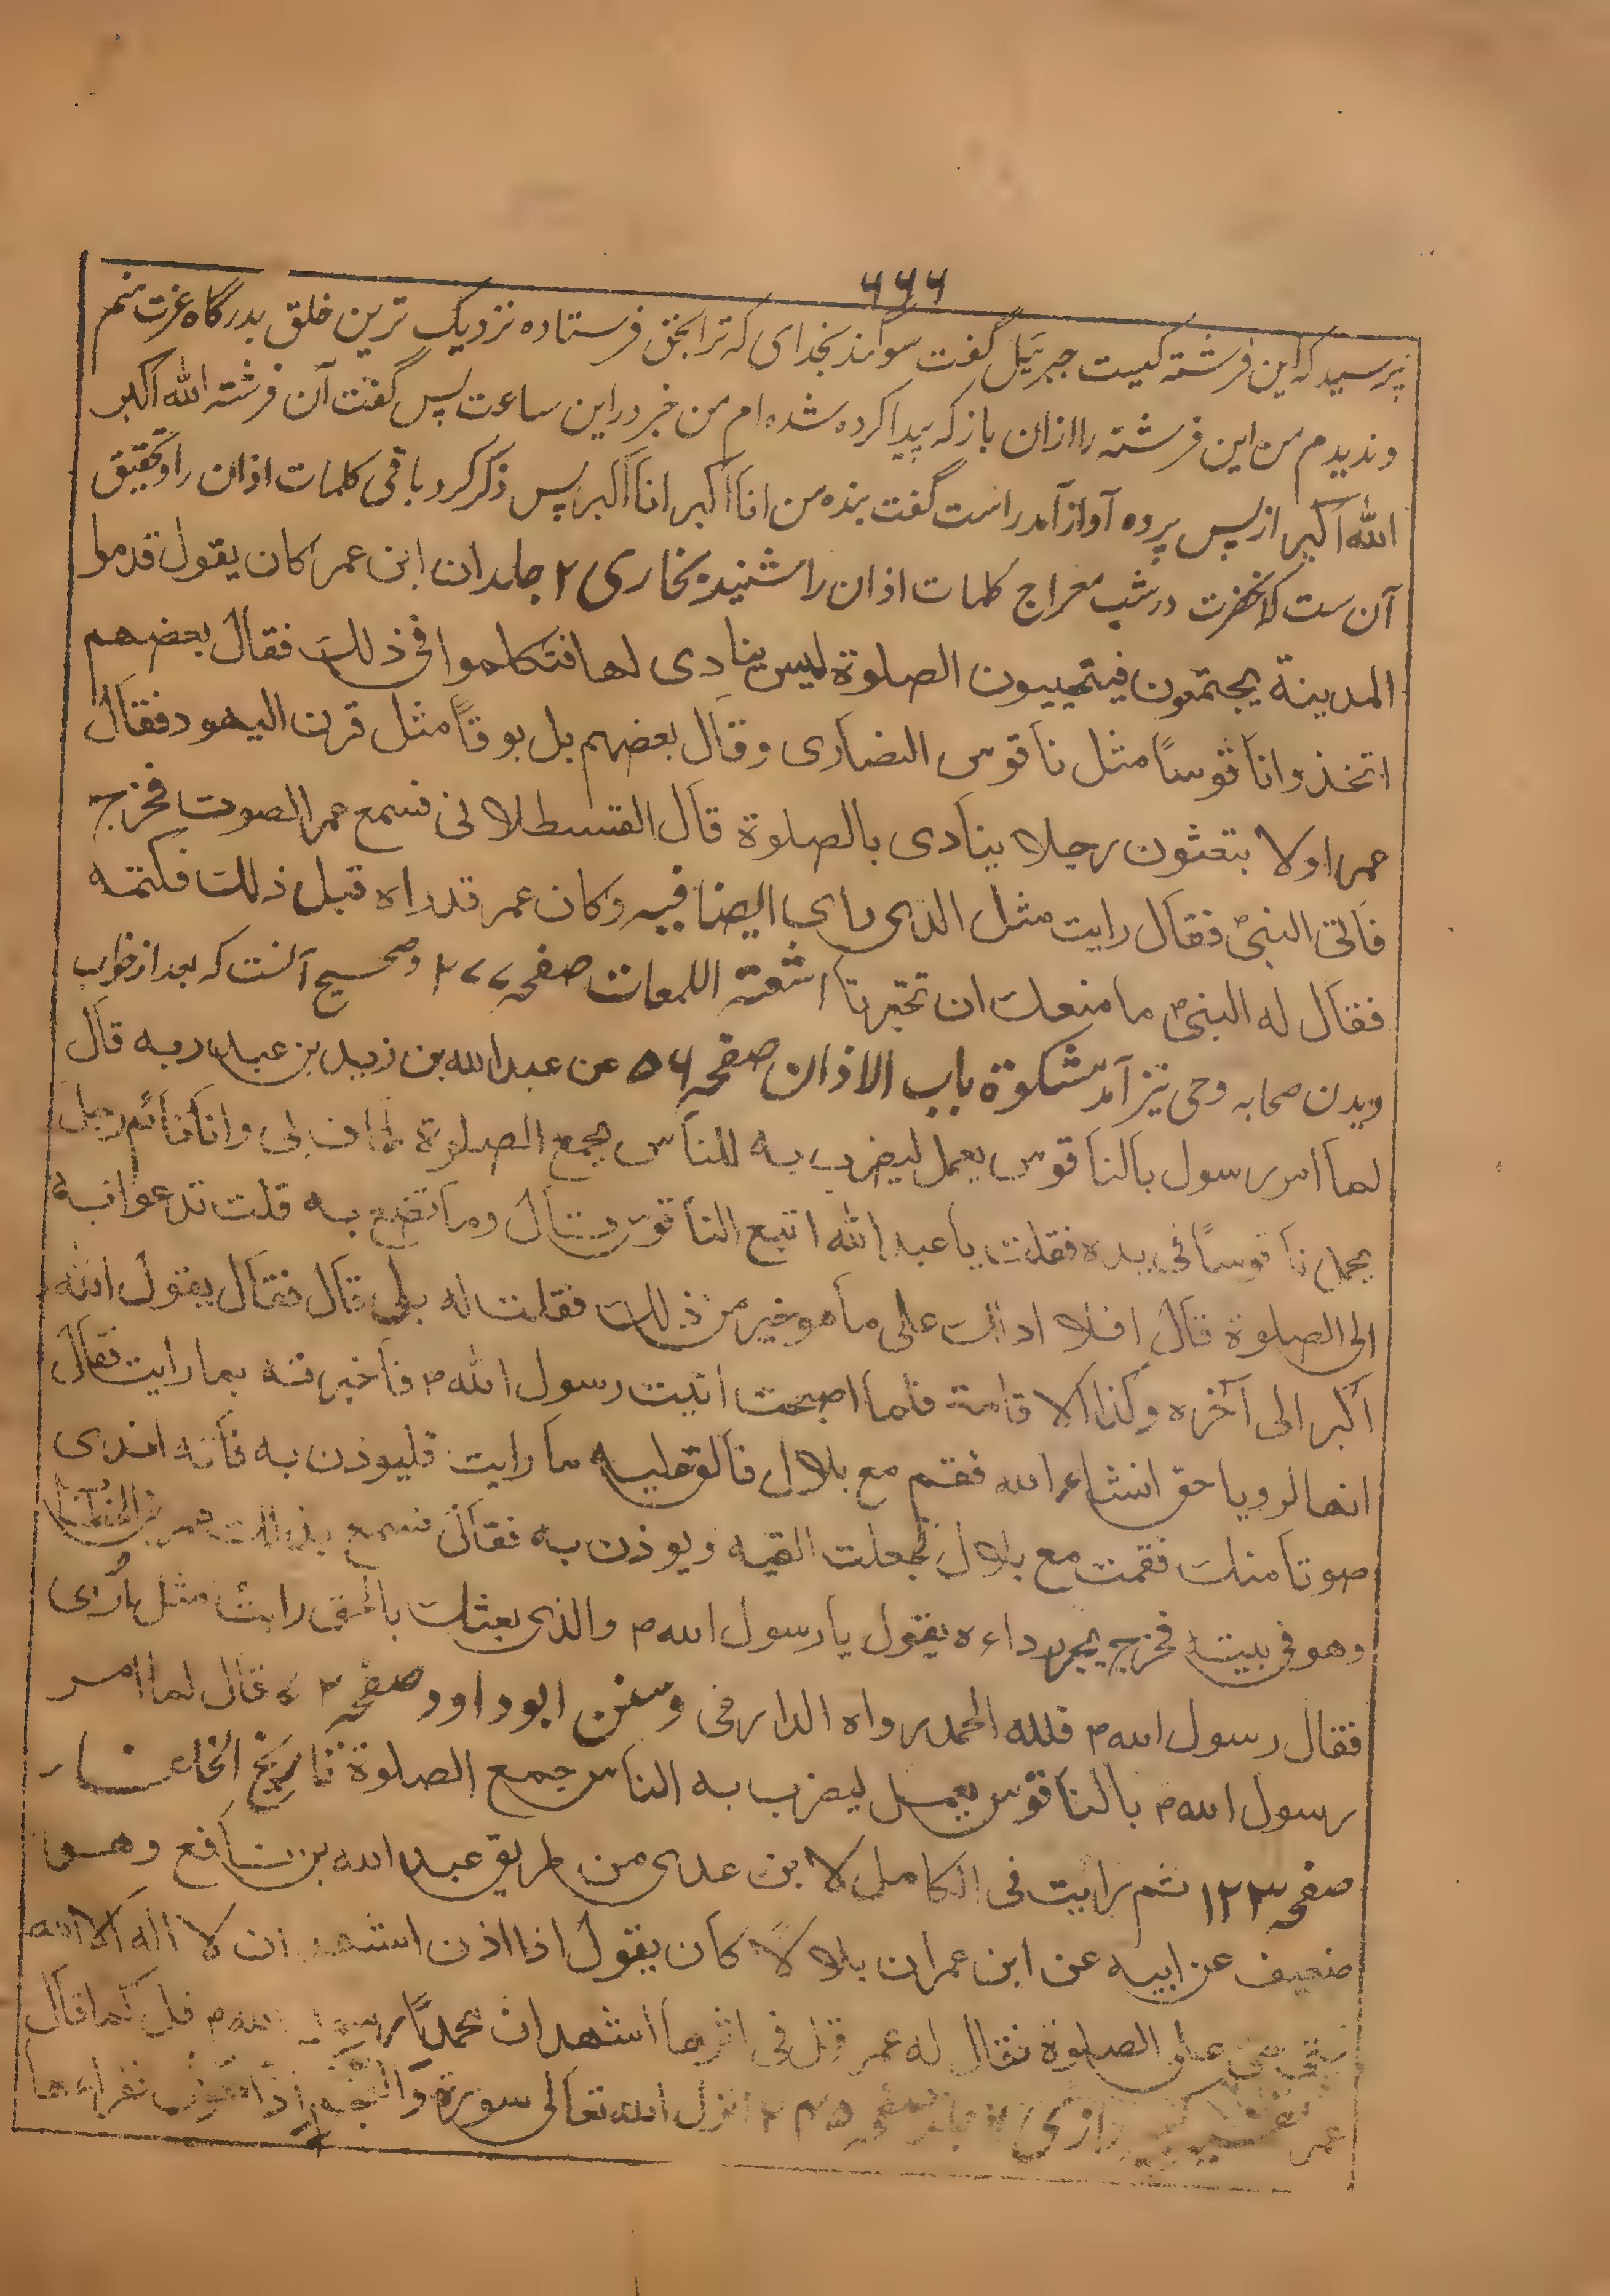 ۶۶۶
پرسید که این فرشته کیست جبرئیل گفت سوگند بخدای که ترا بحق فرستاده نزدیک ترین خلق بدرگاه عزت منم
و ندیدم من این فرشته را ازان باز که پیدا کرده شده ام من خبر دراین ساعت پس گفت آن فرشته الله اکبر
الله اکبر از پس پرده آواز آمد راست گفت بنده من انا اکبر انا اکبر پس ذکر کرد باقی کلمات اذان را و تحقیق
آن ست که آنحضرت در شب معراج کلمات اذان را شنید بخاری ۲ جلد ان ابن عمر کان یقول قدموا
المدینة یجتمعون فیتحیبون الصلوة لیس ینادی لها فتکلموا فی ذلک فقال بعضهم
اتخذوا ناقوسًا مثل ناقوس النصاری وقال بعضهم بل بوقًا مثل قرن الیهود فقال
عمر اولا تبعثون رجلا ینادی بالصلوة قال القسطلانی فسمع عمر الصوت فخرج
فاتی النبیؐ فقال رایت مثل الذی رای ایضا فیه وکان عمر قد راه قبل ذلک فکتمه
فقال له النبیؐ ما منعک ان تخبرنا اشعة اللمعات صفحه ۳۷۷ وصحیح آنست که بعد از خواب
دیدن صحابه وحی نیز آمد مشکوة باب الاذان صفحه ۵۶ عن عبد الله بن زید بن عبد ربه قال
لما امر رسول بالناقوس یعمل لیضرب به للناس یجمع الصلوة طاف بی وانا نائم رجل
یحمل ناقوسًا فی یده فقلت یا عبد الله اتبع الناقوس قال وما تصنع به قلت ندعوا به
الی الصلوة قال افلا ادلک علی ما هو خیر من ذلک فقلت له بلی قال فقال یقول الله
اکبر الی آخره وکذا الاقامة فلما اصبحت اتیت رسول الله ص فاخبرته بما رایت فقال
انها لرویا حق انشاء الله فقم مع بلال فالق علیه ما رایت فلیوذن به فانه اندی
صوتا منک فقمت مع بلال فجعلت القیه ویوذن به فقال فسمع بذلک عمر بن الخطاب
وهو فی بیته فخرج یجر رداءه یقول یا رسول الله ص والذی بعثک بالحق رایت مثل ما رای
فقال رسول الله ص فلله الحمد رواه الدارمی وسنن ابوداود صفحه قال لما امر
رسول الله ص بالناقوس یعمل لیضرب به الناس جمع الصلوة تاریخ الخلفاء
صفحه ۱۲۳ ثم رایت فی الکامل لابن عدی من طریق عبد الله بن نافع وهو
ضعیف عن ابیه عن ابن عمر ان بلالًا کان یقول اذا اذن اشهد ان لا اله الا الله
حی علی الصلوة فقال له عمر قل فی اثرها اشهد ان محمدًا رسول الله ص قل کما قال
عمر تفسیر کبیر رازی انزل الله تعالی سورة والنجم اذا فقراءها